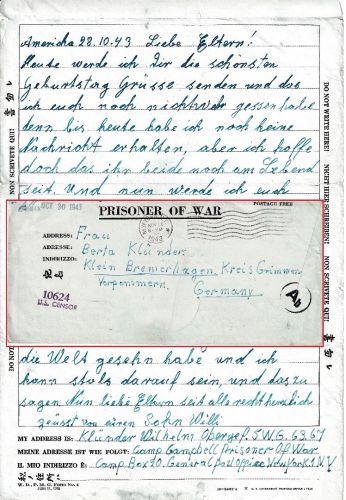 Amerika 28.10.43 Liebe Eltern!
Heute werde ich Dir die schönsten
Geburtstag Grüsse senden und das
ich euch noch nicht vergessen habe
denn bis heute habe ich noch keine
Nachricht erhalten, aber ich hoffe
doch das ihr beide noch am Lebend
seit. Und nun werde ich euch
OCT 30 1943
PRISONER OF WAR
POSTAGE FREE
1943
ADDRESS: Frau
ADRESSE: Berta Klünder
INDIRIZZO: Klein Bremerhagen, Kreis Grimmen
Vorpommern.
Germany
10624
U.S. CENSOR
die Welt gesehn habe und ich
kann stolz darauf sein, und das zu
sagen Nun liebe Eltern seit alle recht herzlich
grüsst von euren Sohn Willi
MY ADDRESS IS: Klünder Wilhelm Obergef. 5.W.G. 6367
MEINE ADRESSE IST WIE FOLGT: Camp Campbell Prisoner Of War
IL MIO INDIRIZZO È: Camp Box 20. General post Office New York N.Y.
W. D., P. M. G. Form No. 4
U. S. GOVERNMENT PRINTING OFFICE
NON SCRIVETE QUI!
DO NOT WRITE HERE!
NICHT HIER SCHREIBEN!
NON SCRIVETE QUI!
NON SCRIVETE QUI!
DO NOT